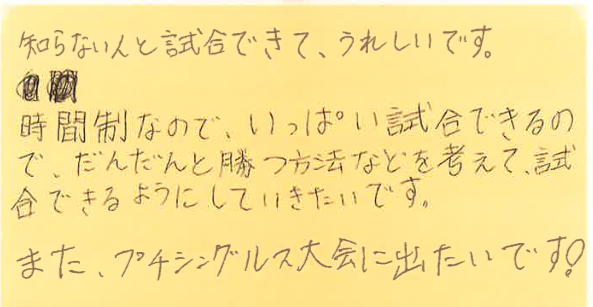 知らない人と試合できて、うれしいです。
時間制なので、いっぱい試合できるの
で、だんだんと勝つ方法などを考えて、試
合できるようにしていきたいです。
また、プチシングルス大会に出たいです!